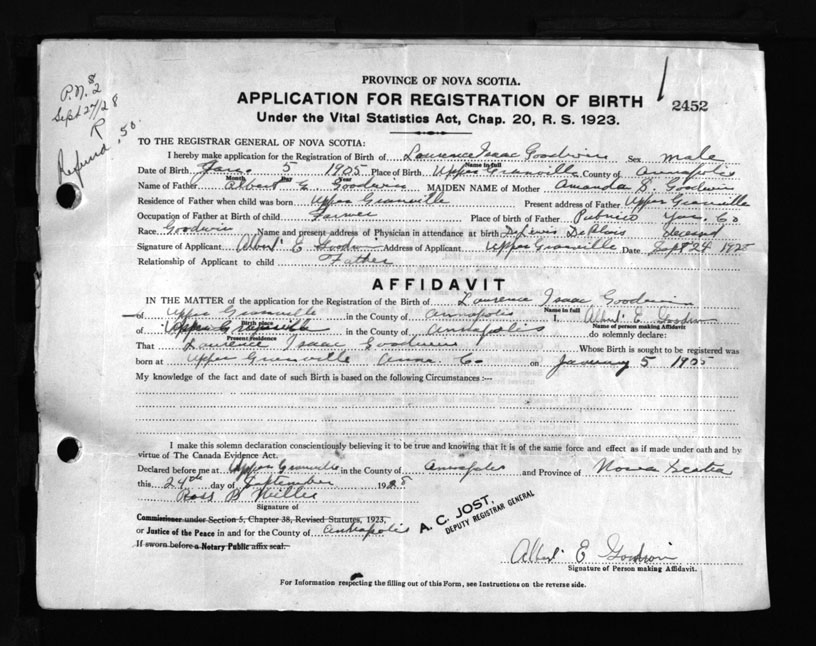 P.N. 82
Sept 27/28
R
Refund .50.
PROVINCE OF NOVA SCOTIA.
APPLICATION FOR REGISTRATION OF BIRTH
2452
Under the Vital Statistics Act, Chap. 20, R. S. 1923.
TO THE REGISTRAR GENERAL OF NOVA SCOTIA:
I hereby make application for the Registration of Birth of Lawrence Isaac Goodwin Sex male
Name in full
Date of Birth Jan. 5 1905 Place of Birth Upper Granville County of Annapolis
Month Day Year
Name of Father Albert E. Goodwin MAIDEN NAME of Mother Amanda S. Goodwin
Residence of Father when child was born Upper Granville Present address of Father Upper Granville
Occupation of Father at Birth of child Farmer Place of birth of Father Pubnico Yar. Co
Race Goodwin Name and present address of Physician in attendance at birth Dr Lewis deceased
Signature of Applicant Albert E Goodwin Address of Applicant Upper Granville Date Sept 24
Relationship of Applicant to child Father
AFFIDAVIT
IN THE MATTER of the application for the Registration of the Birth of Lawrence Isaac Goodwin
Name in full
of Upper Granville in the County of Annapolis I, Albert E Goodwin
Birth place
Name of person making Affidavit
of Upper Granville in the County of Annapolis do solemnly declare:
Present residence
That Lawrence Isaac Goodwin Whose Birth is sought to be registered was
born at Upper Granville Anna Co on January 5 1905
My knowledge of the fact and date of such Birth is based on the following Circumstances :—
I make this solemn declaration conscientiously believing it to be true and knowing that it is of the same force and effect as if made under oath and by
virtue of The Canada Evidence Act.
Declared before me at Upper Granville in the County of Annapolis and Province of Nova Scotia
this 24th day of September 1928
Ross B Willis
Signature of
Commissioner under Section 5, Chapter 38, Revised Statutes, 1923,
or Justice of the Peace in and for the County of Annapolis
If sworn before a Notary Public affix seal.
A. C. JOST,
DEPUTY REGISTRAR GENERAL
Albert E Goodwin
Signature of Person making Affidavit.
For Information respecting the filling out of this Form, see Instructions on the reverse side.